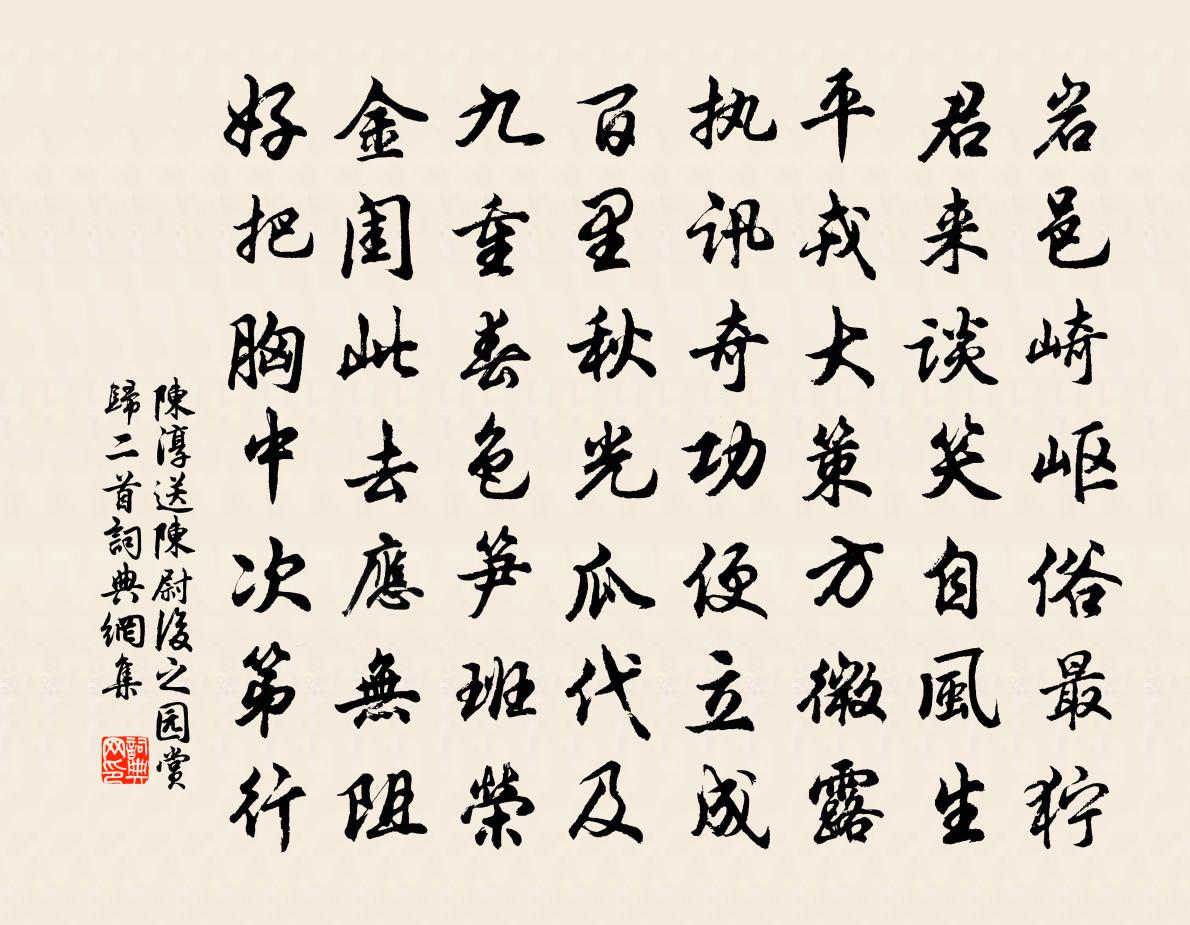 岩邑崎岖俗最狞
君来談笑自風生
平戎大策方微露
执讯奇功便立成
百里秋光瓜代及
九重春色笋班榮
金闺此去應無阻
好把胸中次第行
陳淳送陳尉浚之园赏
歸二首詞典網集
詞典网印